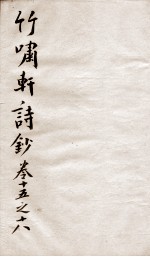 竹嘯軒詩鈔卷十五之十八